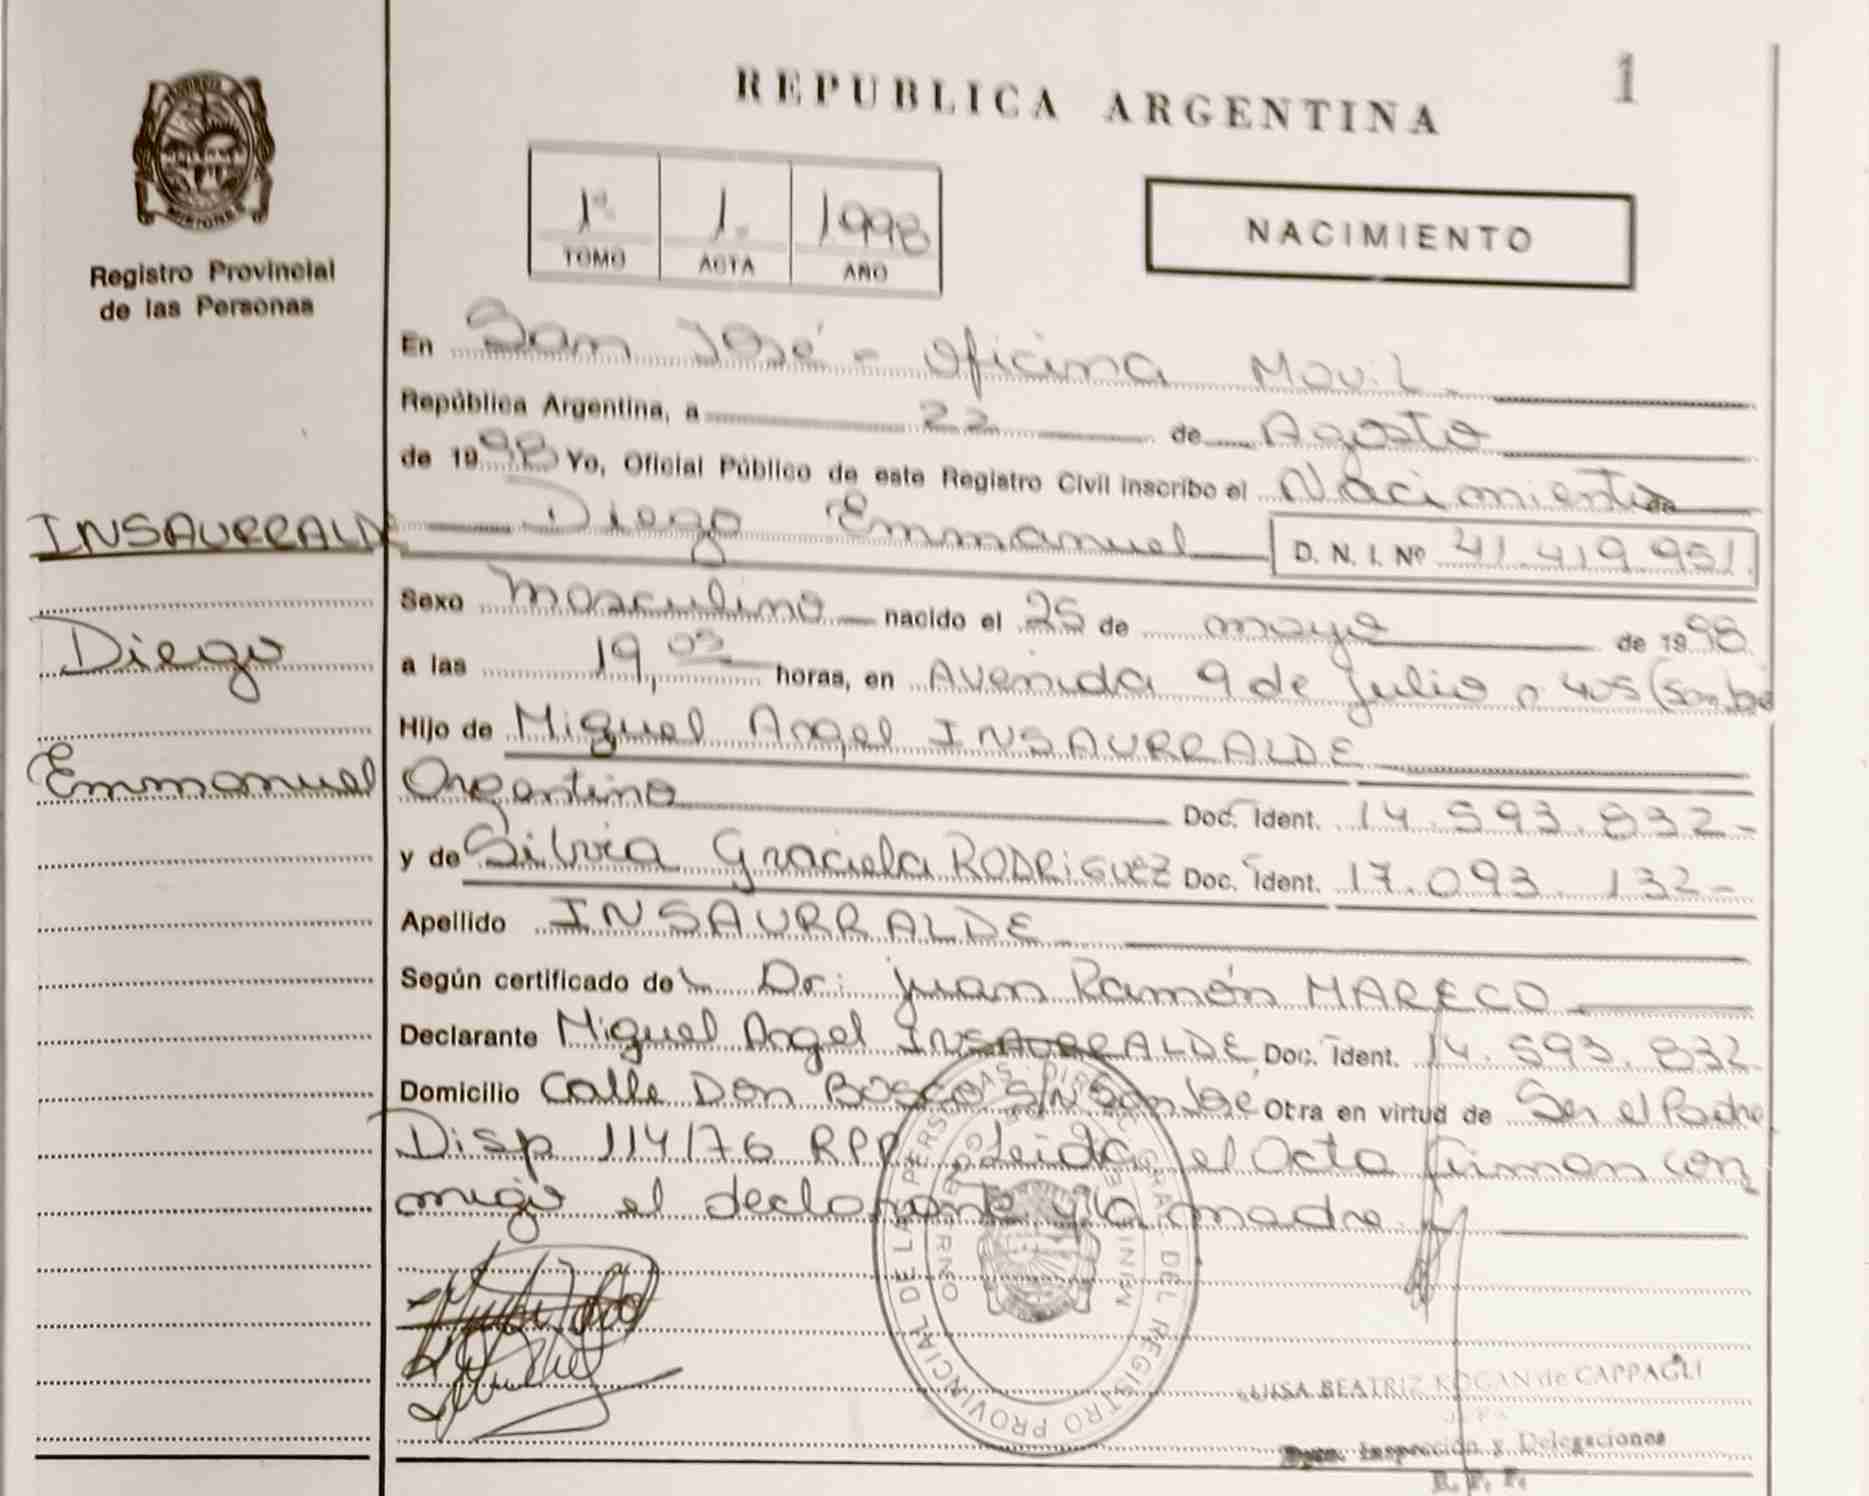 REPUBLICA ARGENTINA
1
Registro Provincial
de las Personas
1º 1. 1998
TOMO ACTA AÑO
NACIMIENTO
En San José - Oficina Movil
República Argentina, a 22 de Agosto
de 1998 Yo, Oficial Público de este Registro Civil inscribo el Nacimiento de
INSAURRALDE
Diego Emmanuel D. N. I. Nº 41.419.951.
Sexo masculino nacido el 25 de mayo de 1998
Diego
a las 19,05 horas, en Avenida 9 de Julio 405 (San José
Hijo de Miguel Angel INSAURRALDE
Emmanuel
Argentino Doc. Ident. 14.593.832-
y de Silvia Graciela RODRIGUEZ Doc. Ident. 17.093.132-
Apellido INSAURRALDE
Según certificado del Dr: Juan Ramón MARECO
Declarante Miguel Angel INSAURRALDE Doc. Ident. 14.593.832
Domicilio Calle Don BOSCO S/N San José Otra en virtud de Ser el Padre
Disp 114/76 RPP Leida el Acta firman con
migo el declarante y la madre
DIREC. GRAL. DEL REGISTRO PROVINCIAL DE LAS PERSONAS
LUISA BEATRIZ KOGAN de CAPPAGLI
Inspección y Delegaciones
R. P. P.